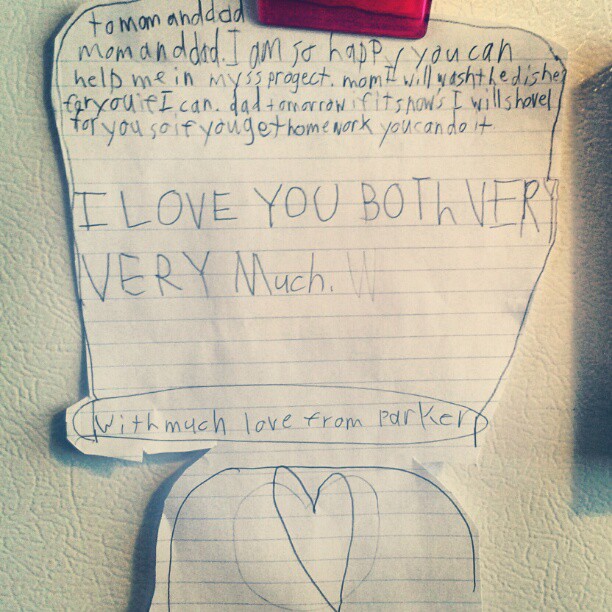 to mom and dad
mom and dad. I am so happy you can
help me in my ss progect. mom I will washt he dishe
for you if I can. dad tomorrow if it snows I will shovel
for you so if you get homework you can do it
I LOVE YOU BOTh VERY
VERY Much. W
With much love from parker